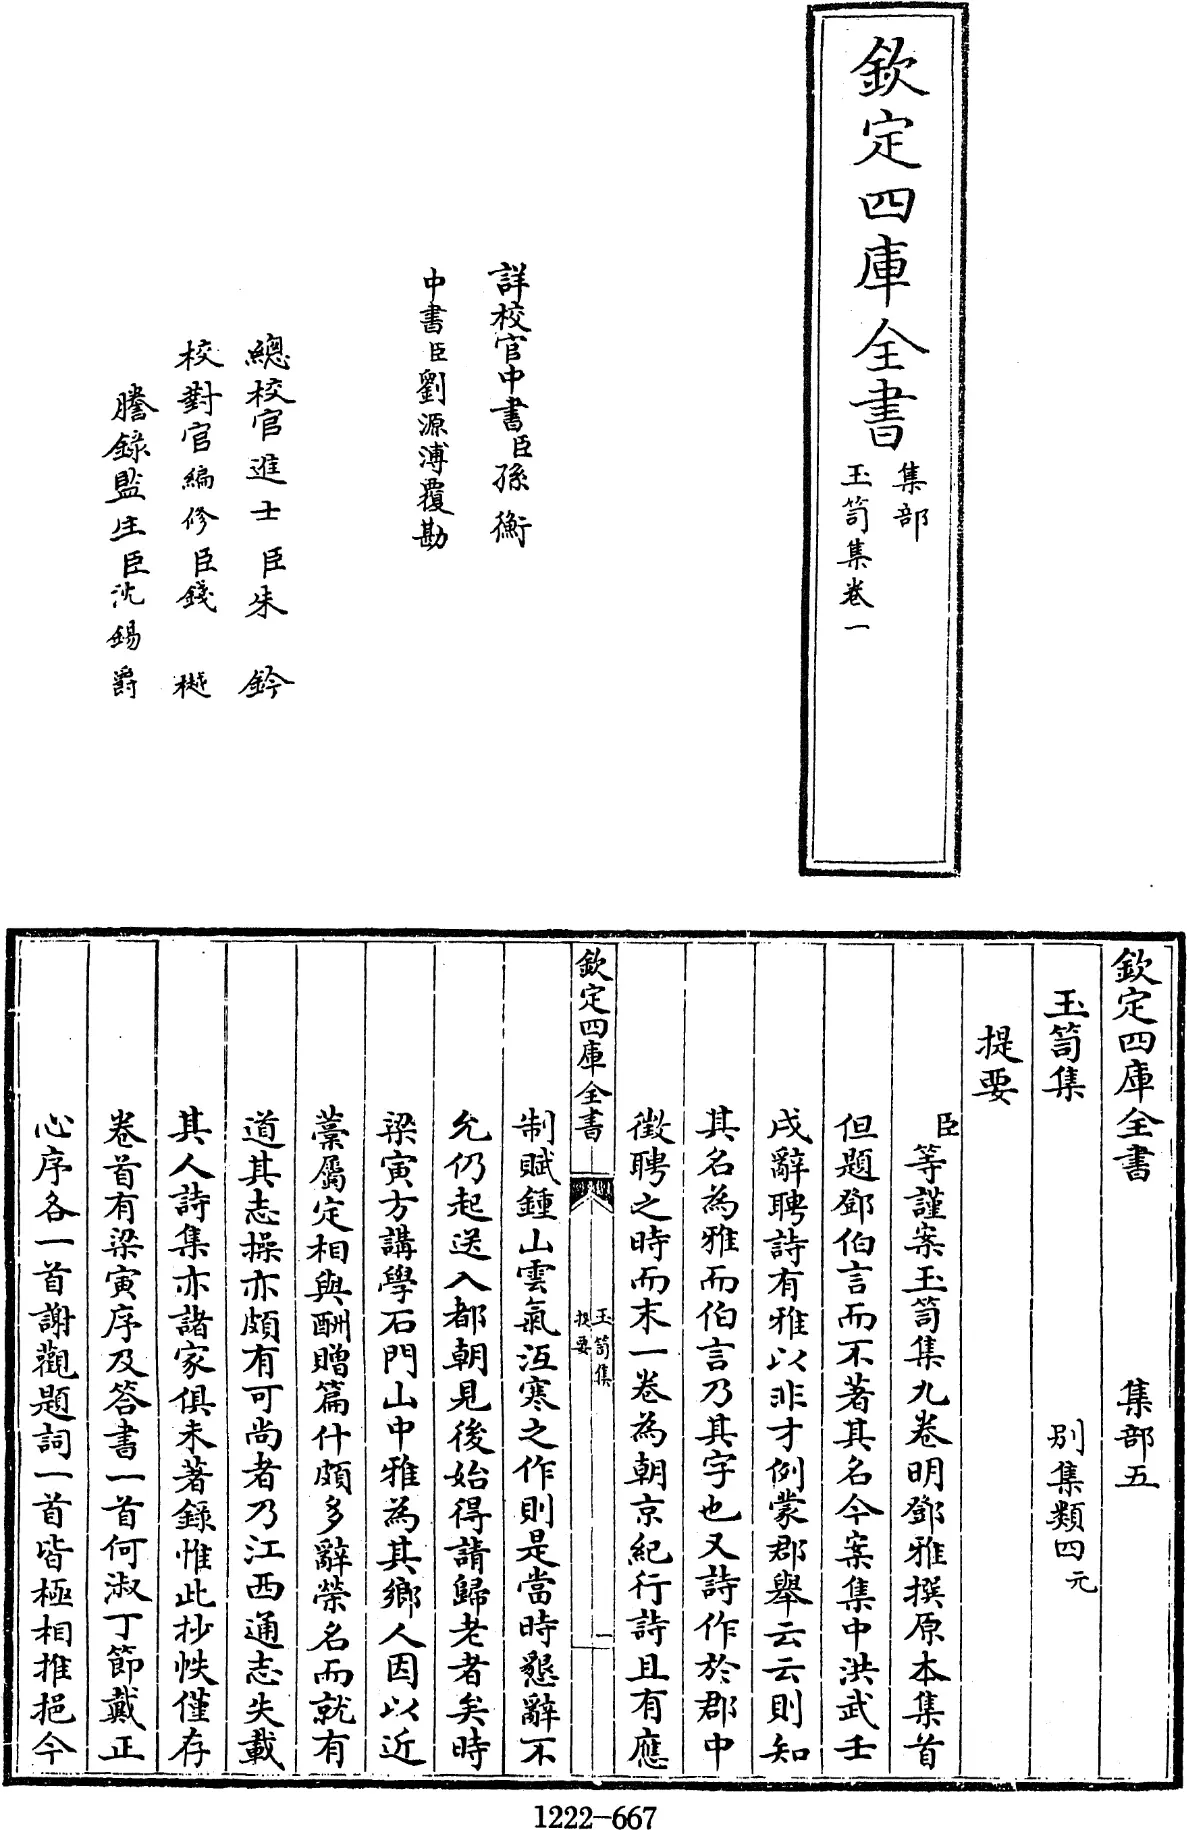 欽定四庫全書
集部
玉笥集卷一
詳校官中書臣孫衡
中書臣劉源溥覆勘
總校官進士臣朱鈐
校對官編修臣錢樾
謄錄監生臣沈錫爵
欽定四庫全書 集部五
玉笥集 別集類四元
提要
臣等謹案玉笥集九卷明鄧雅撰原本集首
但題鄧伯言而不著其名今案集中洪武壬
戌辭聘詩有雅以非才例蒙郡舉云云則知
其名為雅而伯言乃其字也又詩作於郡中
徵聘之時而末一卷為朝京紀行詩且有應
欽定四庫全書
玉笥集
提要
一
制賦鍾山雲氣沍寒之作則是當時懇辭不
允仍起送入都朝見後始得請歸老者矣時
梁寅方講學石門山中雅為其鄉人因以近
藁屬定相與酬贈篇什頗多辭榮名而就有
道其志操亦頗有可尚者乃江西通志失載
其人詩集亦諸家俱未著錄惟此抄帙僅存
卷首有梁寅序及答書一首何淑丁節戴正
心序各一首謝觀題詞一首皆極相推挹今
1222-667